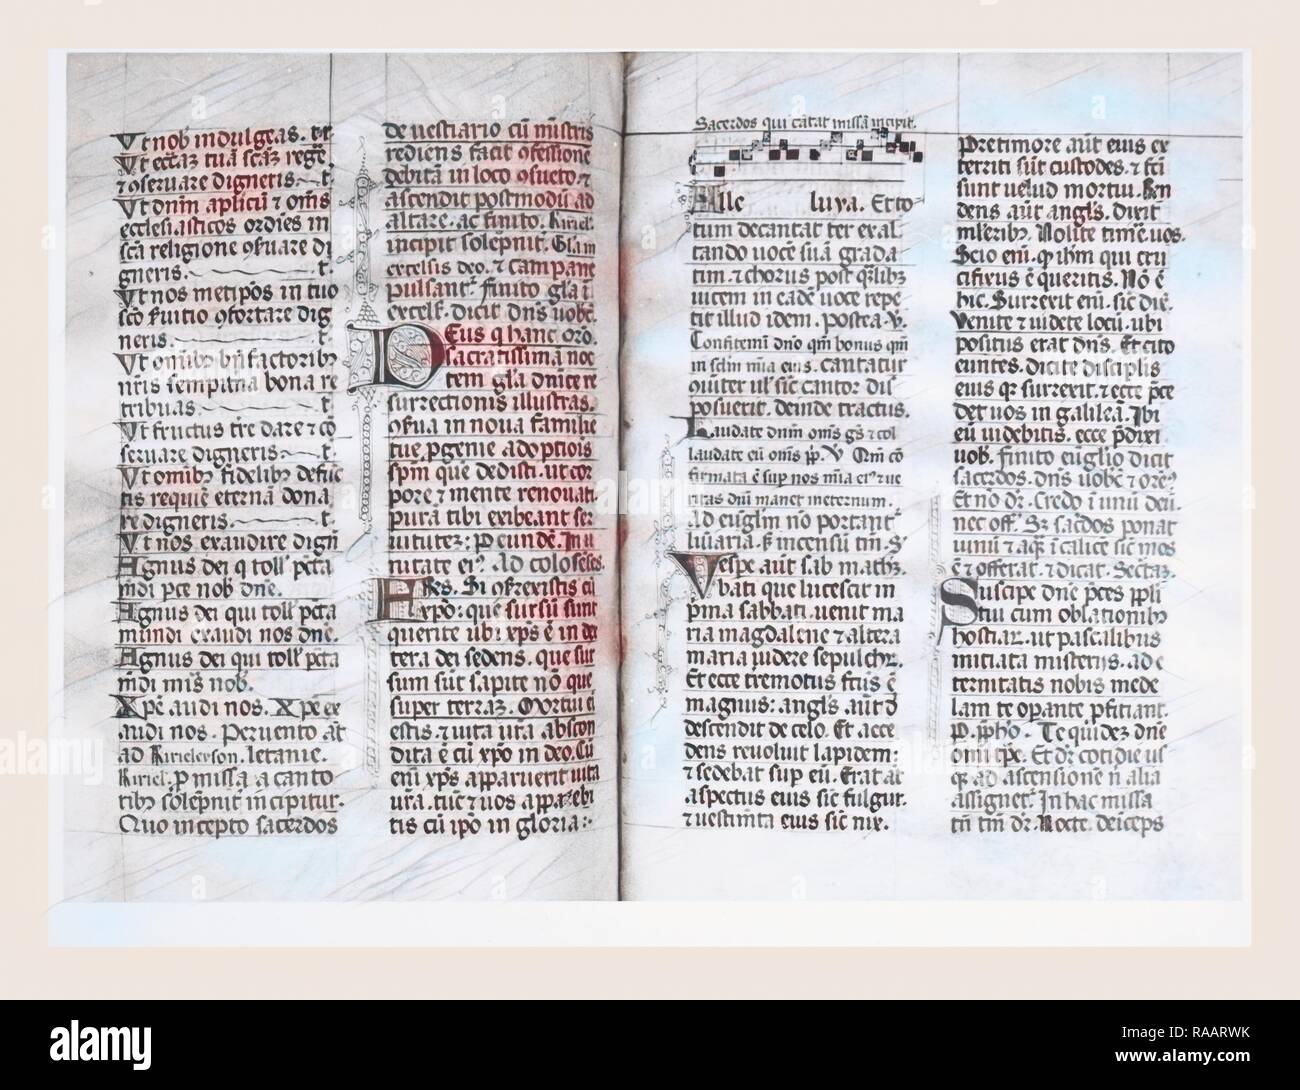 Vt nob indulgeas. t r
Vt ecc̄az tuā scāz regē
⁊ ꝯseruare digneris t.
Vt dn̄m aplicū ⁊ om̄s
ecclesiasticos ordīes in
sc̄a religione ꝯẜuare di
gneris. t.
Vt nos metip̄os in tuo
sc̄o ẜuitio ꝯfortare dig
neris. t.
Vt om̄ibꝫ bn̄factoribꝫ
nr̄is sempitn̄a bona re
tribuas t.
Vt fructus tr̄e dare ⁊ cō
seruare digneris t.
Vt om̄ibꝫ fidelibꝫ defūc
tis requiē eternā dona
re digneris. t.
Vt nos exaudire dign̄
Agnus dei q toll' pc̄ta
mūdi pce nob dn̄e.
Agnus dei qui toll' pc̄ta
mūndi exaudi nos dn̄e.
Agnus dei qui toll' pc̄ta
m̄di mis̄ nob.
Xp̄e audi nos. Xp̄e ex
audi nos. Peruento āt
ad Kirieleyson. letanie.
Kiriel. ꝓ missa a canto
ribꝫ solēpnit̄ incipitur.
Quo incepto sacerdos
de uestiario cū mīstris
rediens facit ꝯfessionē
debitā in loco ꝯsueto. ⁊
ascendit postmodū ad
altare. ac finito. Kiriel.
incipit solēpnit̄. Glīam
excelsis deo. ⁊ campane
pulsant̄ finito glīa ī
excels̄. dicit dn̄s uobc̄.
DEus q hanc oro.
sacratissimā noc
tem glīa dn̄ice re
surrectionis illustras.
ꝯẜua in noua familie
tue ꝓgenie adoptiōis
sp̄m quē dedisti. ut cor
pore ⁊ mente renouati.
purā tibi exibeant ser
uitutez. ꝑ eundē. In u
nitate ei⁹ ad coloseses.
FRēs. Si ꝯsrexistis cū
xp̄o: que sursū sunt
querite ubi xp̄s ē in dex
tera dei sedens. que sur
sum sūt sapite nō que
super terraz. Mortui ei
estis. ⁊ uita ur̄a abscon
dita ē cū xp̄o in deo. Cū
em̄ xp̄s apparuerit uita
ur̄a. tūc ⁊ uos apparebi
tis cū ip̄o in gloria:
Sacerdos qui cātat missā incipit.
Alle luya. Et to
tum decantat ter exal
tando uocē suā grada
tim. ⁊ chorus post q̄libꝫ
uicem in eadē uoce repe
tit illud idem. postea. V.
Confitemī dn̄o qm̄ bonus qm̄
in sc̄lm mīa eius. cantatur
quiter ul' sic̄ cantor dis
posuerit. deinde tractus.
Laudate dn̄m om̄s gs̄ ⁊ col
laudate eū om̄s pp̄. V Qm̄ cō
firmata ē sup nos mīa ei⁹ ⁊ ue
ritas dn̄i manet ineternum.
ad euglm̄ nō portant̄
luīaria. s̄ incensū tm̄. S.
Vespe aūt sab math.
bati que lucescit in
pīma sabbati. uenit ma
ria magdalene ⁊ altera
maria uidere sepulchrꝫ.
Et ecce tremotus fc̄us ē
magnus: angls̄ aūt d
descendit de celo. Et acce
dens reuoluit lapidem:
⁊ sedebat sup eū. Erat aūt
aspectus eius sic̄ fulgur.
⁊ uestimīta eius sic̄ nix.
Pretimore aūt eius ex
territi sūt custodes. ⁊ fc̄i
sunt uelud mortui. Res
dens aūt angls̄. dixit
mlieribꝫ. Nolite timē uos.
Scio em̄. qꝫ ihm qui cru
cifixus ē queritis. Nō ē
hic. Surrexit em̄. sic̄ dix̄.
Venite ⁊ uidete locū. ubi
positus erat dn̄s. Et cito
euntes. dicite discipls
eius qꝫ surrexit. ⁊ ecce p̄ce
det uos in galileā. Ibi
eū uidebitis. ecce p̄dixi
uob. finito euglīo dicit
sacerdos. dn̄s uobc̄ ⁊ ore⁹
Et nō dr̄. Credo ī unū deū.
nec off. S; sacdos ponat
uinū ⁊ aq̄ ī calice sic̄ mos
ē ⁊ offerat. ⁊ dicat. Secta.
Suscipe dn̄e pc̄es ppli
tui cum oblationibꝫ
hostiaꝝ. ut pascalibus
initiata misterijs. ad e
ternitatis nobis mede
lam te opante pficiant.
P. pp̄ho. Te quidez dn̄e
om̄i tp̄e. Et dr̄ cotidie us
qꝫ ad ascensionē n̄ alia
assignet̄. In hac missa
tn̄ tm̄ dr̄. Nocte. deīceps
alamy
Image ID: RAARWK
www.alamy.com